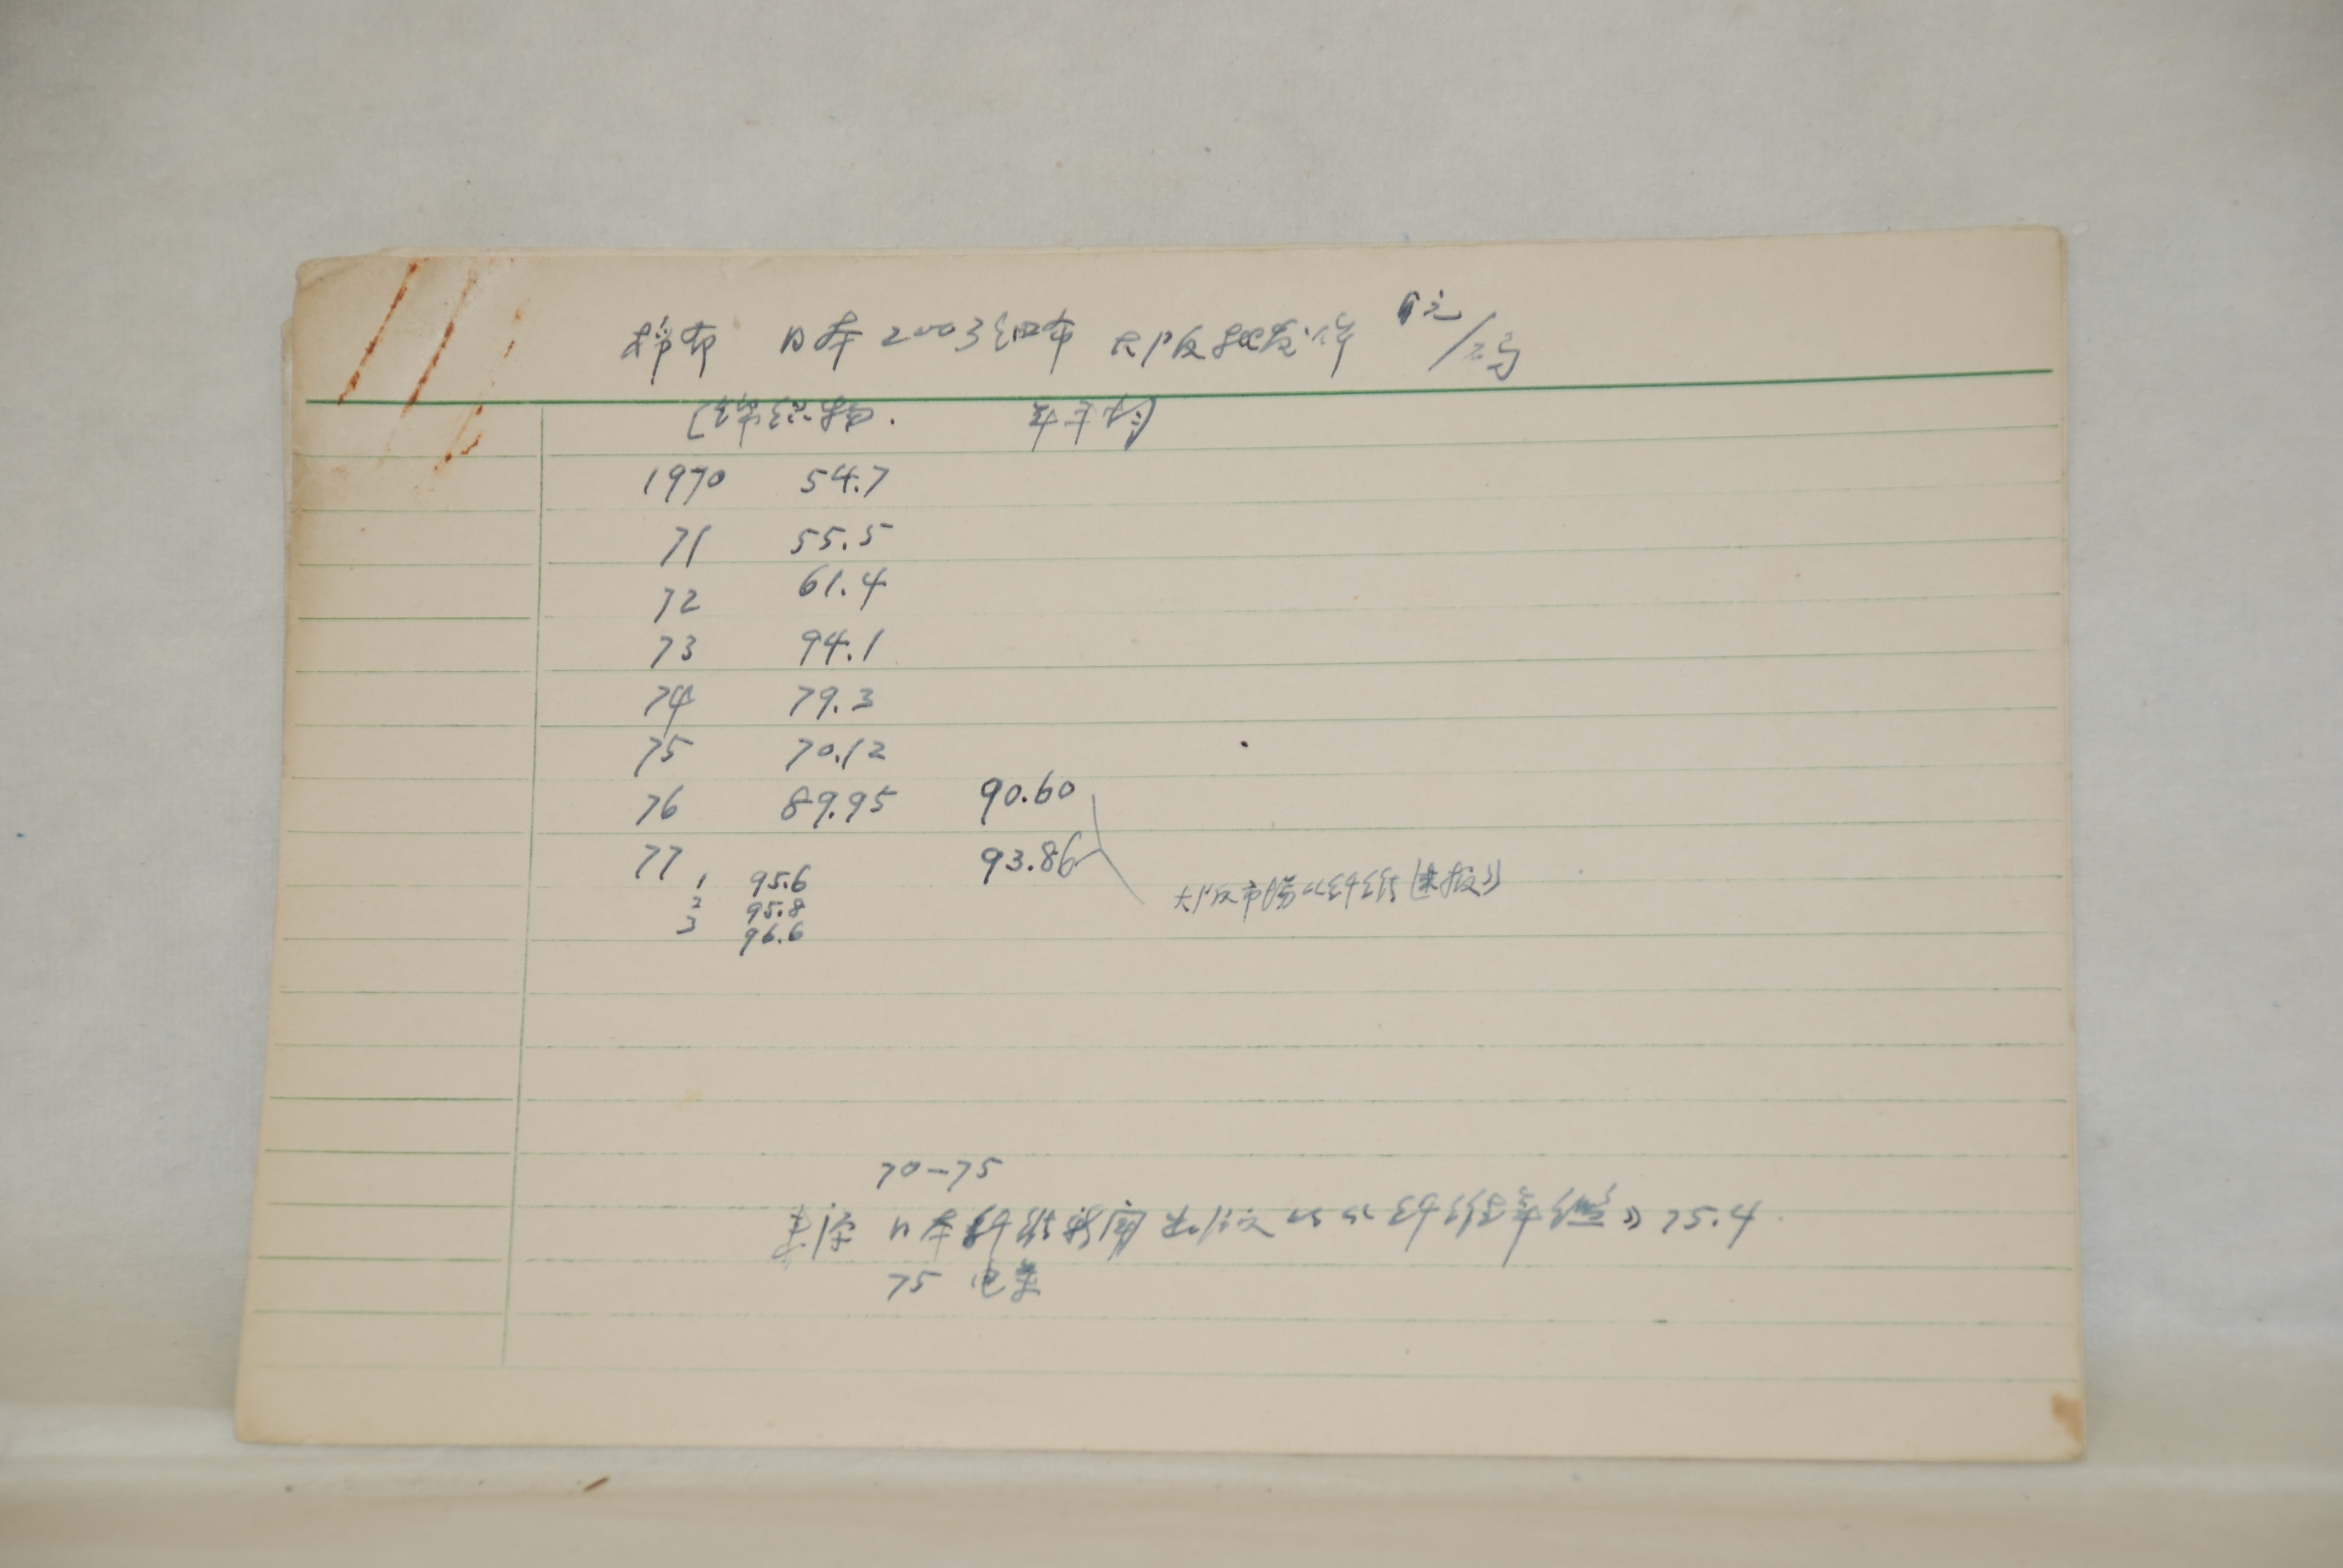 棉布 日本2003细布 大阪批发价 日元/码
(锦织物. 年平均)
1970 54.7
71 55.5
72 61.4
73 94.1
74 79.3
75 70.12
76 89.95 90.60
77 93.86
1 95.6
2 95.8
3 96.6
大阪市场《纤维速报》
70-75
来源 日本纤维新闻 《纤维年鉴》75.4
75